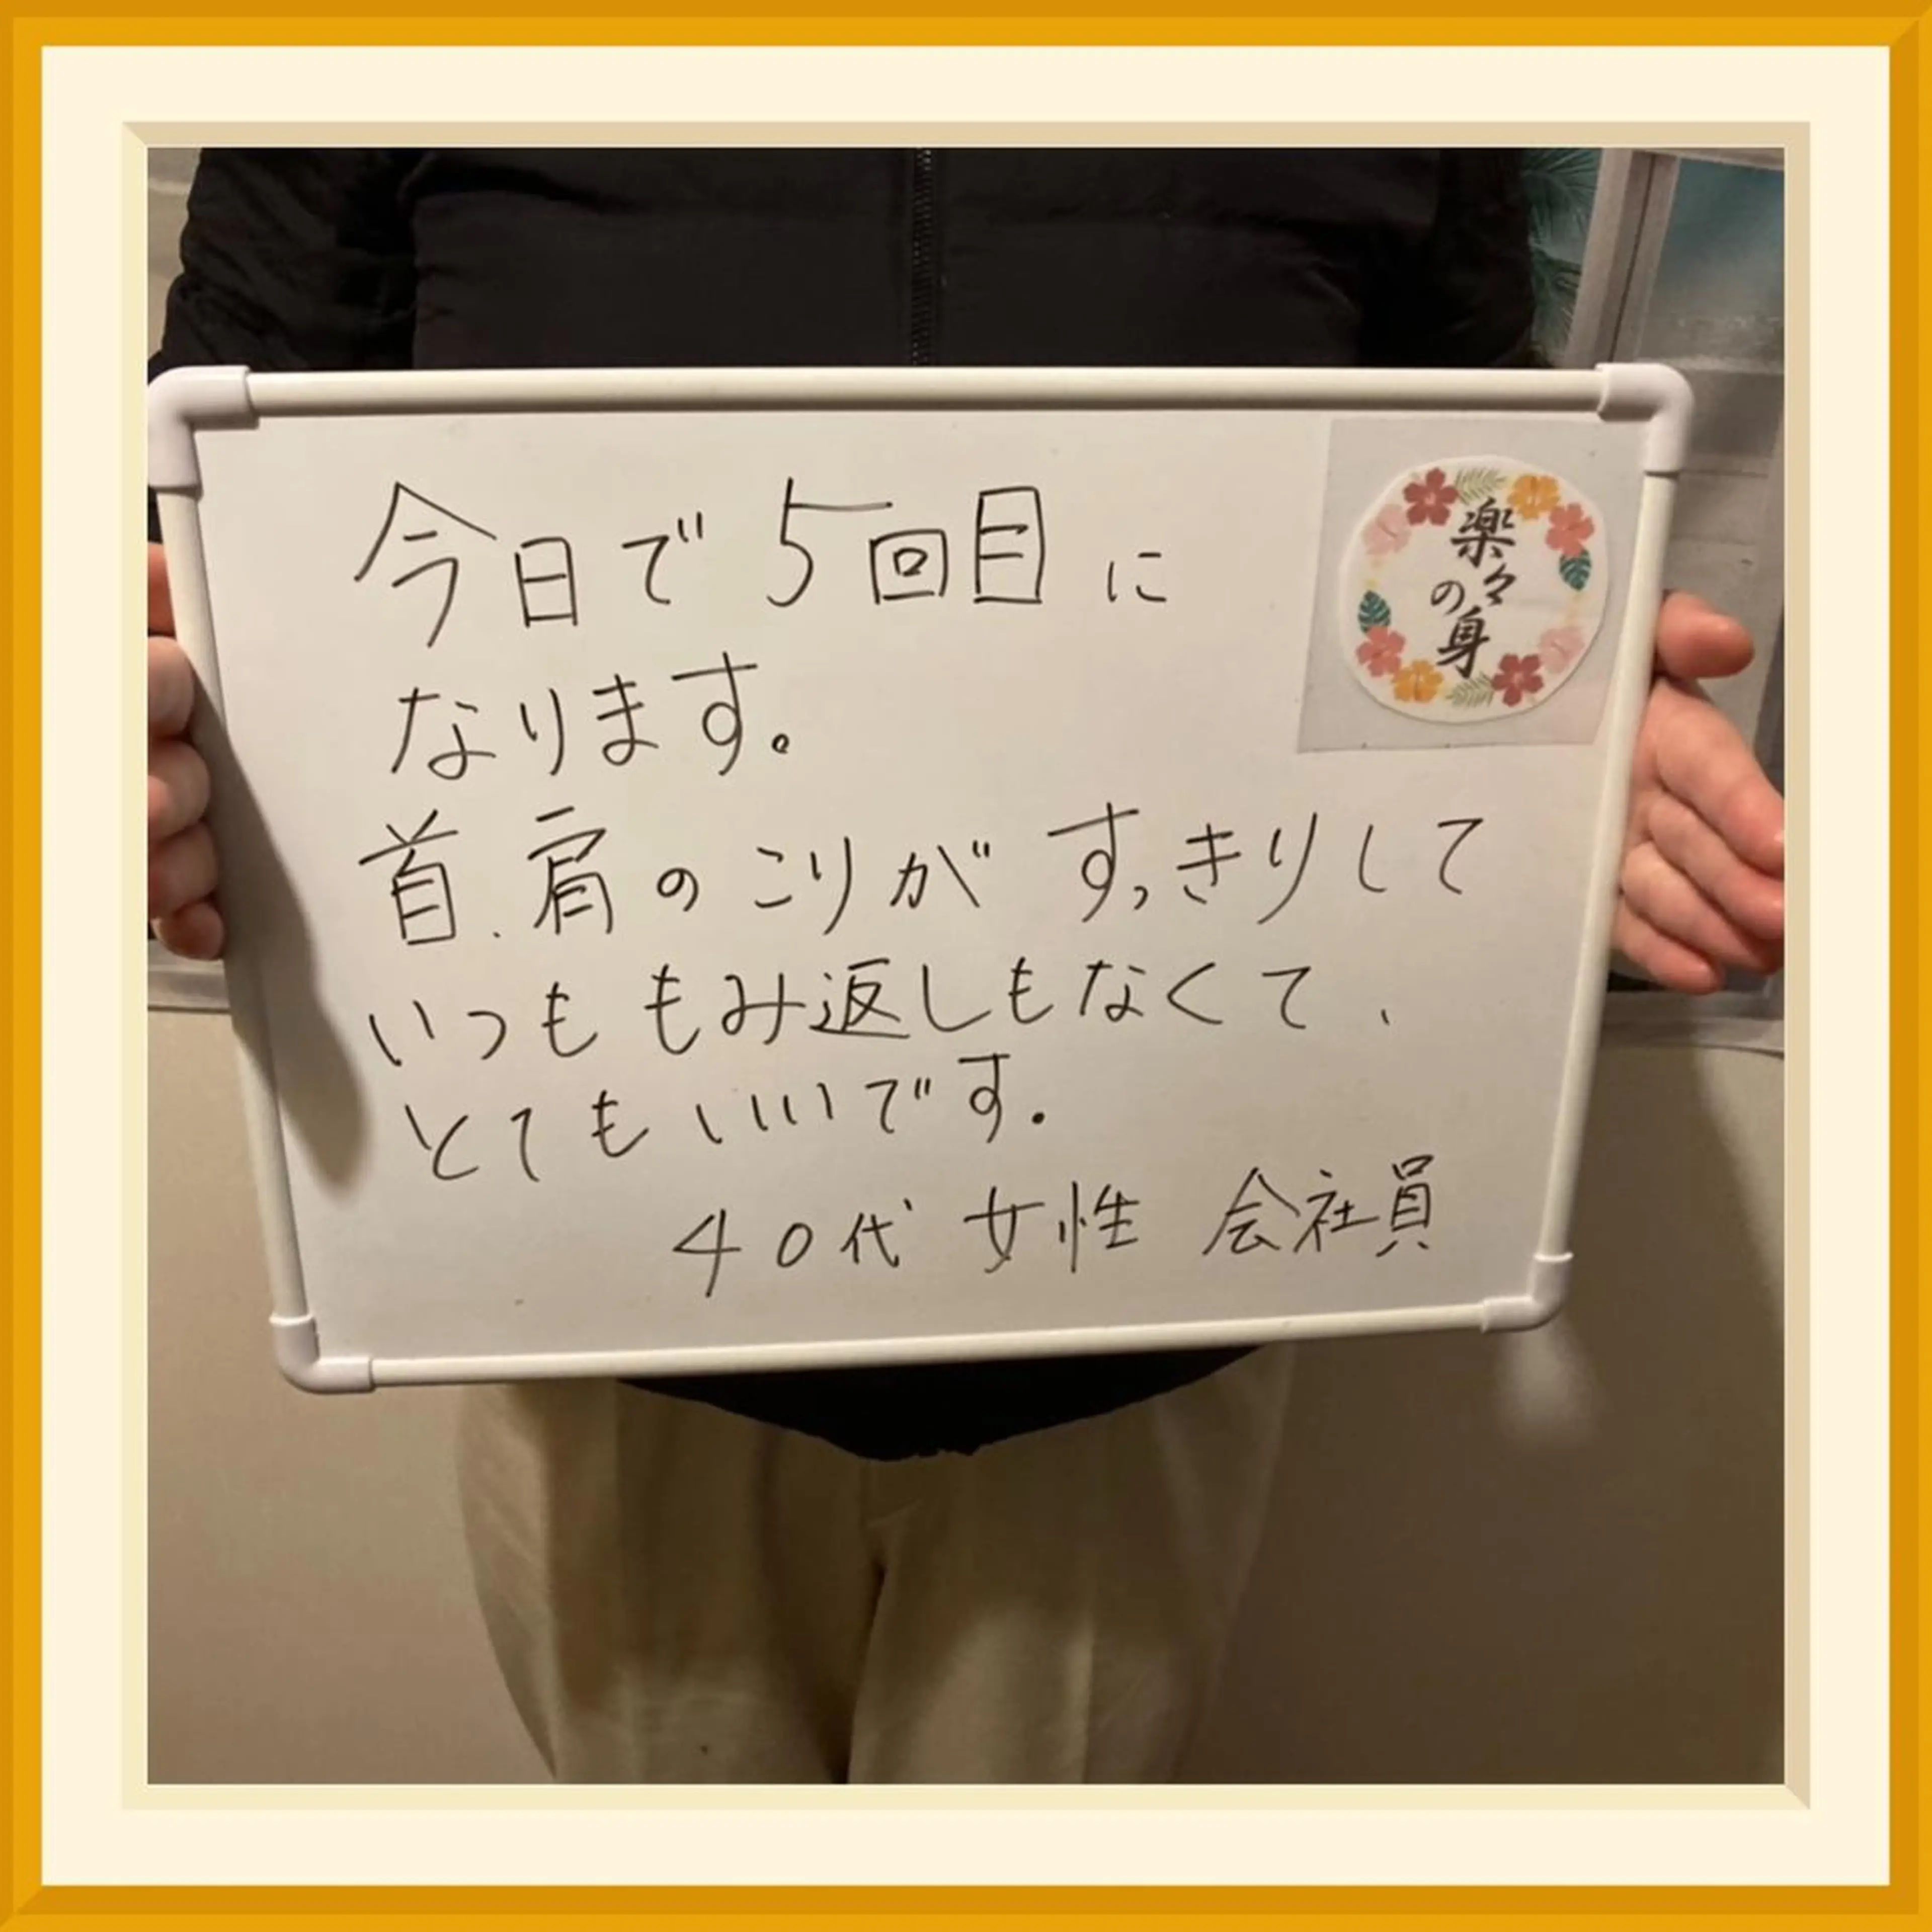 今日で5回目に
なります。
首、肩のこりがすっきりして
いつももみ返しもなくて、
とてもいいです.
40代 女性 会社員
楽々の身